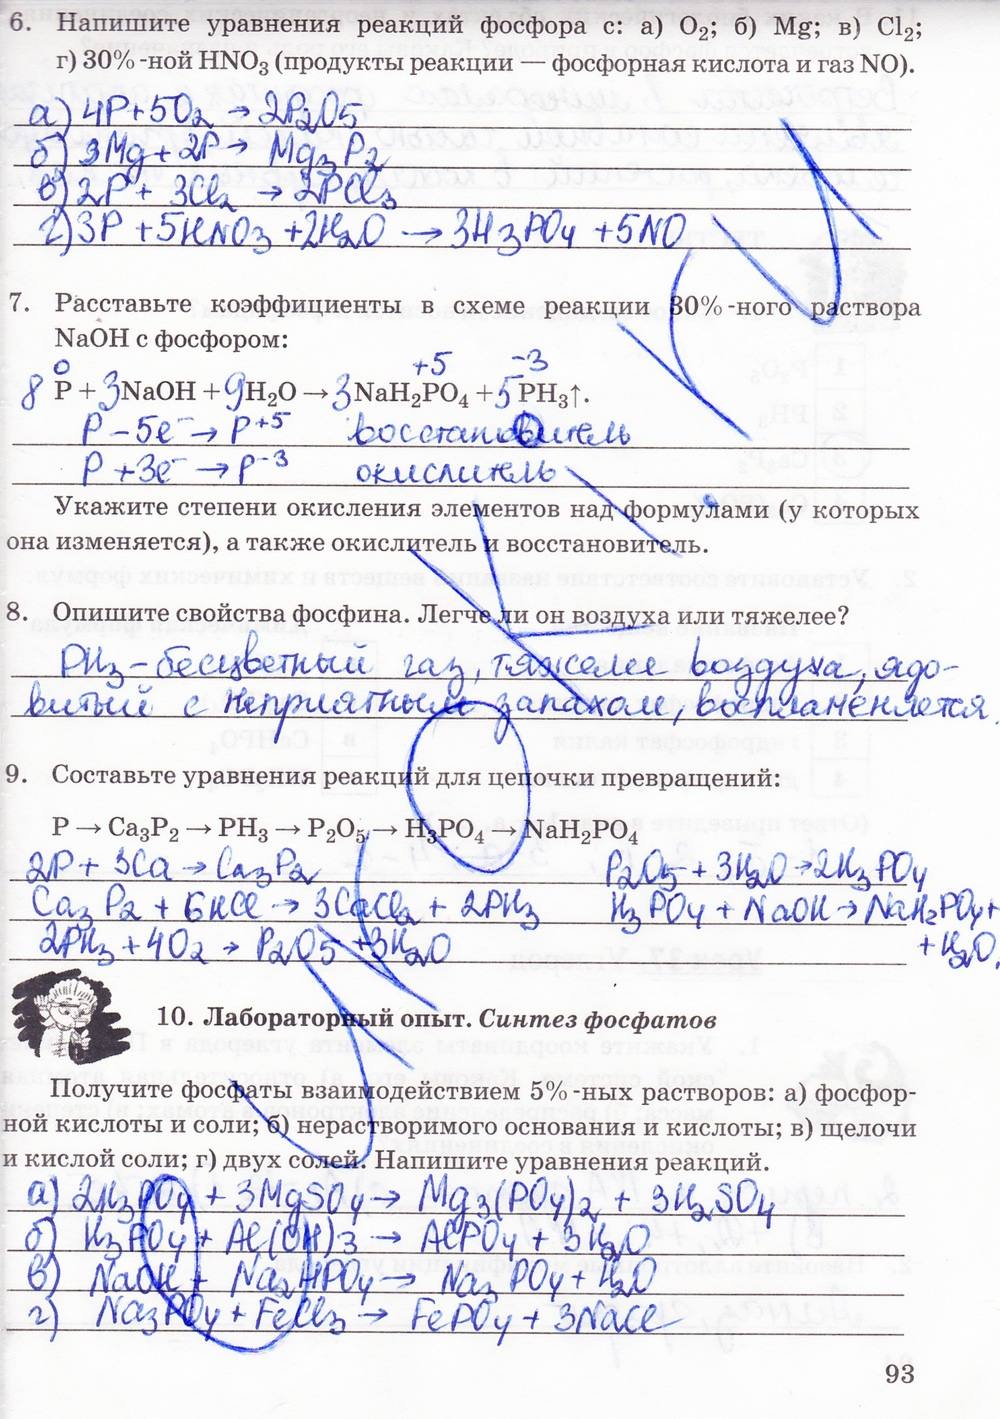 6. Напишите уравнения реакций фосфора с: а) O₂; б) Mg; в) Cl₂;
г) 30%-ной HNO₃ (продукты реакции — фосфорная кислота и газ NO).
а) 4P+5O₂ → 2P₂O₅
б) 3Mg + 2P → Mg₃P₂
в) 2P + 3Cl₂ → 2PCl₃
г) 3P + 5HNO₃ + 2H₂O → 3H₃PO₄ + 5NO
7. Расставьте коэффициенты в схеме реакции 30%-ного раствора
NaOH с фосфором:
0 +5 -3
8 P + 3NaOH + 9H₂O → 3NaH₂PO₄ + 5PH₃↑.
P - 5e⁻ → P⁺⁵ восстановитель
P + 3e⁻ → P⁻³ окислитель
Укажите степени окисления элементов над формулами (у которых
она изменяется), а также окислитель и восстановитель.
8. Опишите свойства фосфина. Легче ли он воздуха или тяжелее?
PH₃ - бесцветный газ, тяжелее воздуха, ядо-
витый с неприятным запахом, воспламеняется.
9. Составьте уравнения реакций для цепочки превращений:
P → Ca₃P₂ → PH₃ → P₂O₅ → H₃PO₄ → NaH₂PO₄
2P + 3Ca → Ca₃P₂ P₂O₅ + 3H₂O → 2H₃PO₄
Ca₃P₂ + 6HCl → 3CaCl₂ + 2PH₃ H₃PO₄ + NaOH → NaH₂PO₄ +
2PH₃ + 4O₂ → P₂O₅ + 3H₂O + H₂O.
10. Лабораторный опыт. Синтез фосфатов
Получите фосфаты взаимодействием 5%-ных растворов: а) фосфор-
ной кислоты и соли; б) нерастворимого основания и кислоты; в) щелочи
и кислой соли; г) двух солей. Напишите уравнения реакций.
а) 2H₃PO₄ + 3MgSO₄ → Mg₃(PO₄)₂ + 3H₂SO₄
б) H₃PO₄ + Al(OH)₃ → AlPO₄ + 3H₂O
в) NaOH + Na₂HPO₄ → Na₃PO₄ + H₂O
г) Na₃PO₄ + FeCl₃ → FePO₄ + 3NaCl
93